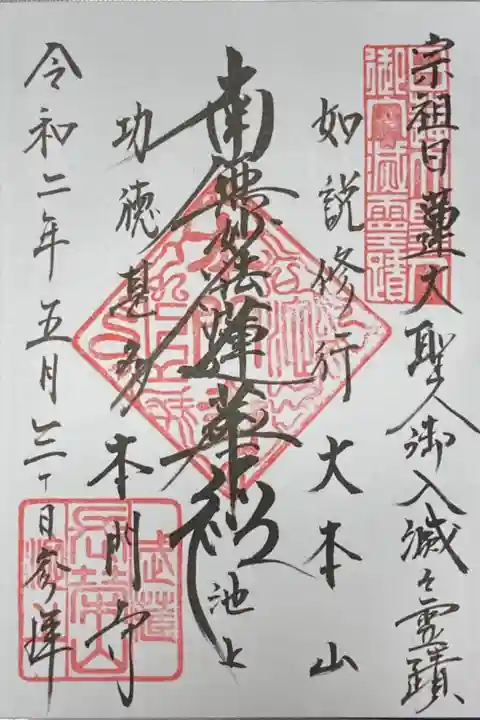 宗祖日蓮大聖人御入滅之霊蹟
如説修行 大本山
南無妙法蓮華経 池上
功徳甚多 本門寺
令和二年五月三十日参拝
御入滅霊蹟